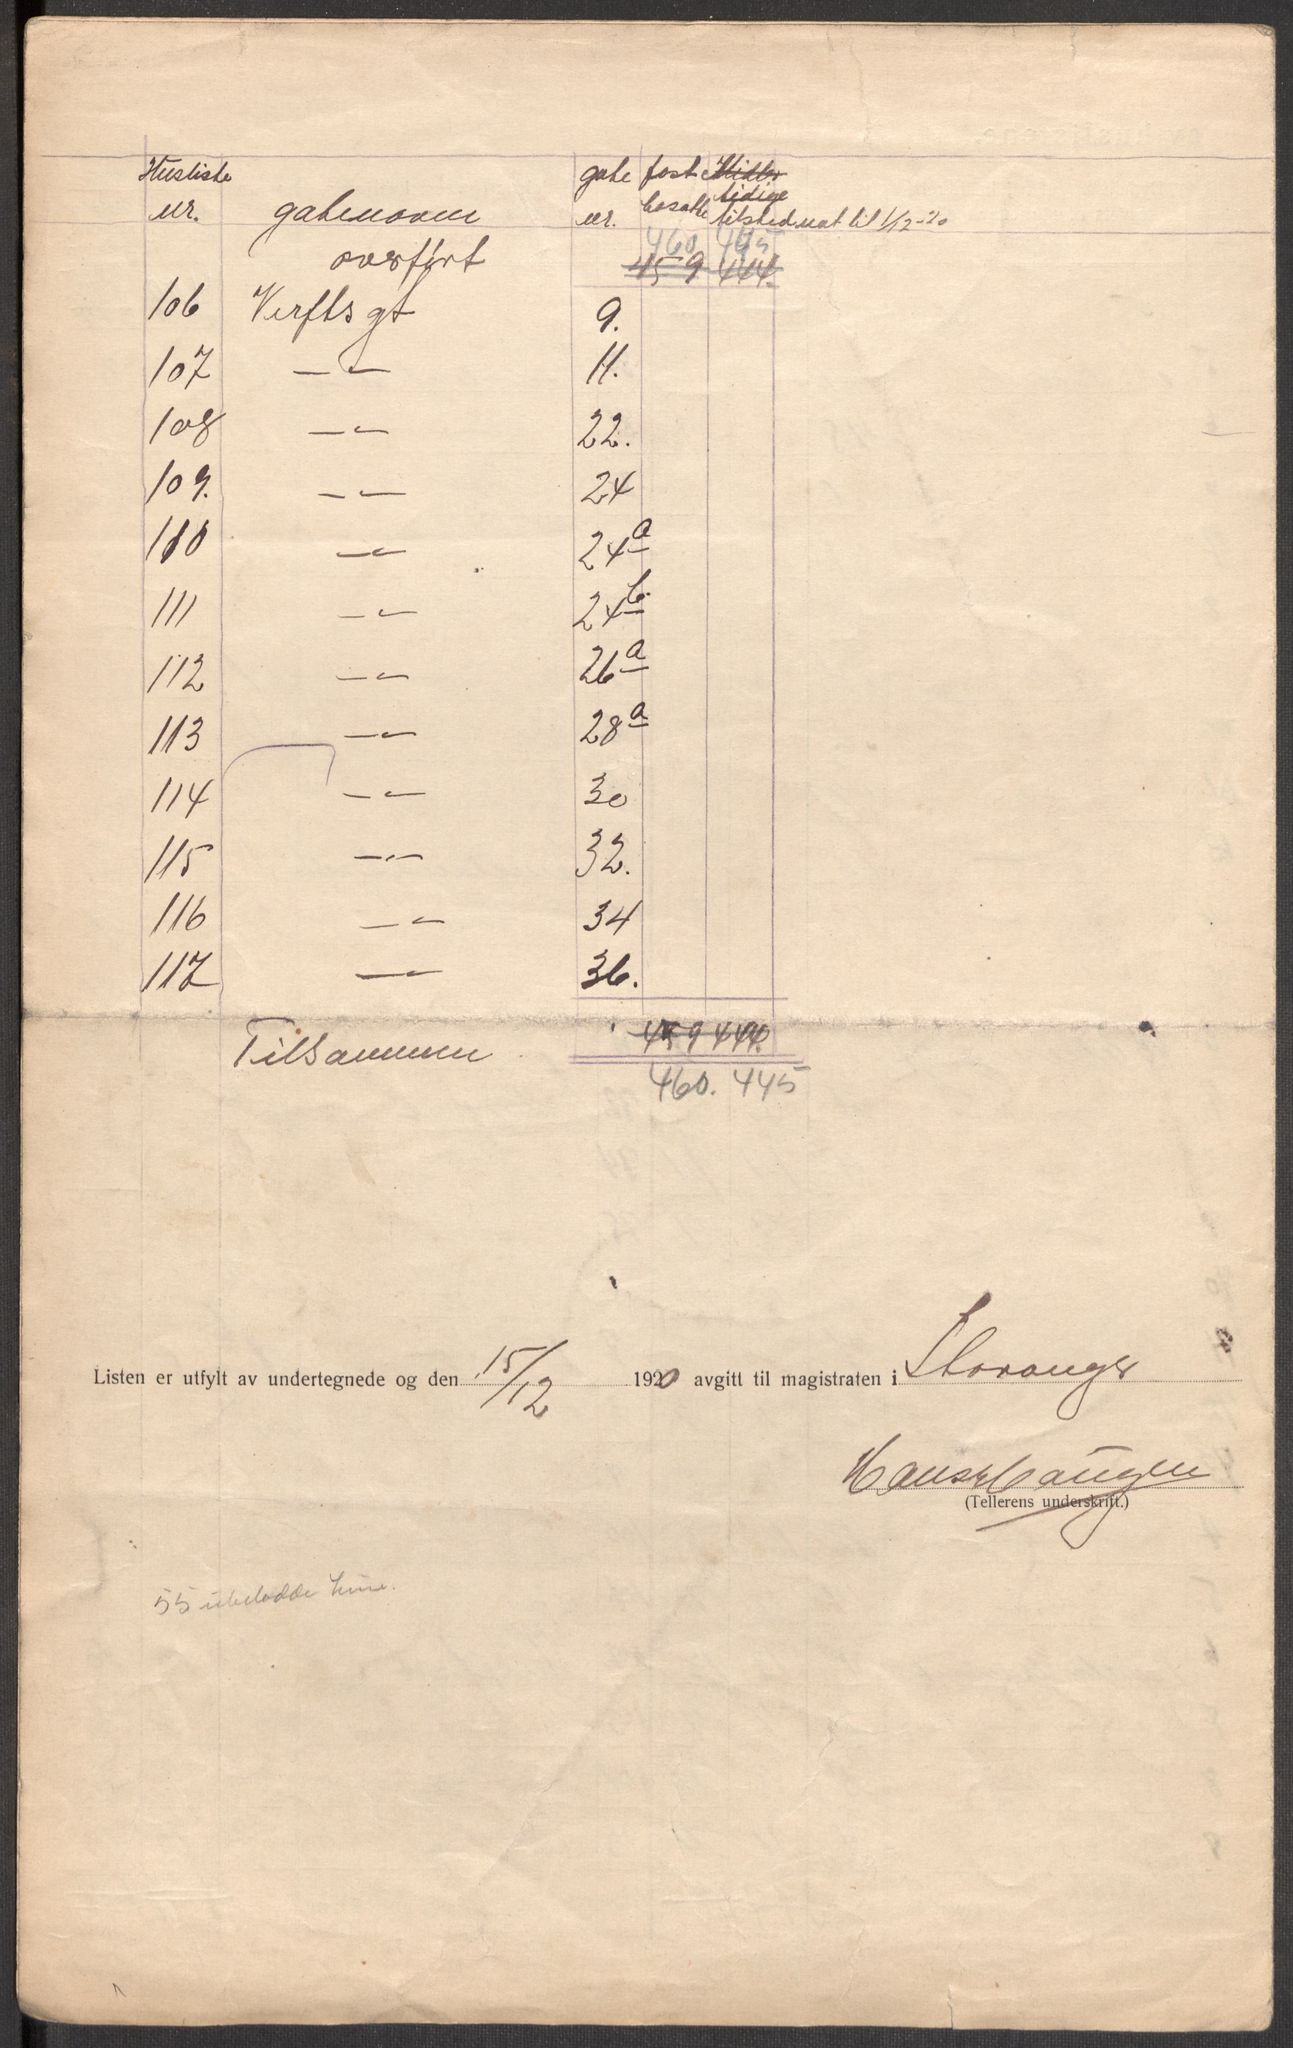 Husliste gate fast
nr. gatenavn nr. bosatte tidige tilsted nat til 1/12-20
460 445
overført 459 444.
106 Verftsgt 9.
107 — — 11.
108 — — 22.
109. — — 24
110 — — 24a
111 — — 24b.
112 — — 26a
113 — — 28a
114 — — 30
115 — — 32.
116 — — 34
117 — — 36.
Tilsammen 459 444.
460. 445
Listen er utfylt av undertegnede og den 15/12 1920 avgitt til magistraten i Stavanger
Hans Haugen
(Tellerens underskrift.)
55 ubebodde